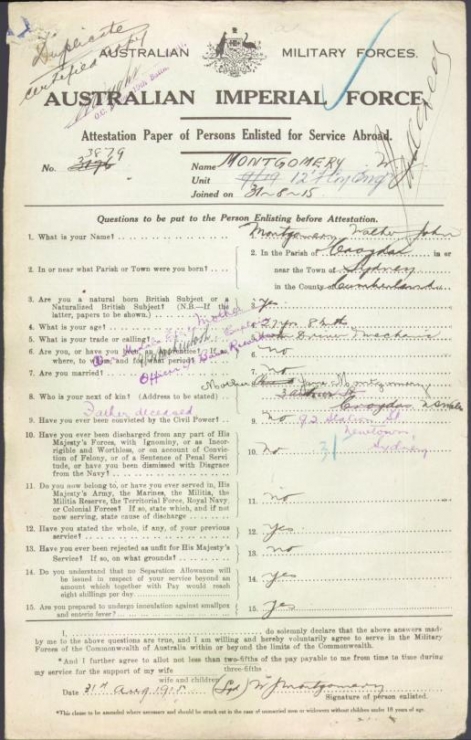 Duplicate
certified copy
AUSTRALIAN MILITARY FORCES.
AUSTRALIAN IMPERIAL FORCE
Attestation Paper of Persons Enlisted for Service Abroad.
No. 3879
Name MONTGOMERY W
Unit
Joined on 31-8-15
Questions to be put to the Person Enlisting before Attestation.
1. What is your Name? Montgomery Walter John
2. In or near what Parish or Town were you born?
2. In the Parish of Croydon in or
near the Town of Sydney
in the County Cumberland
3. Are you a natural born British Subject or a
Naturalized British Subject? (N.B.—If the
latter, papers to be shown.)
3. Yes
4. What is your age?
5. What is your trade or calling?
6. Are you, or have you been an Apprentice? If so,
where, to whom, and for what period?
6. no
7. Are you married?
7. No
8. Who is your next of kin? (Address to be stated)
Mother Jane Montgomery
Croydon
Father deceased
92 Station St
Newtown
Sydney
9. Have you ever been convicted by the Civil Power?
9. no
10. Have you ever been discharged from any part of His
Majesty's Forces, with Ignominy, or as Incor-
rigible and Worthless, or on account of Convic-
tion of Felony, or of a Sentence of Penal Servi-
tude, or have you been dismissed with Disgrace
from the Navy?
10. no
11. Do you now belong to, or have you ever served in, His
Majesty's Army, the Marines, the Militia, the
Militia Reserve, the Territorial Force, Royal Navy,
or Colonial Forces? If so, state which, and if not
now serving, state cause of discharge
11. no
12. Have you stated the whole, if any, of your previous
service?
12. yes
13. Have you ever been rejected as unfit for His Majesty's
Service? If so, on what grounds?
13. no
14. Do you understand that no Separation Allowance will
be issued in respect of your service beyond an
amount which together with Pay would reach
eight shillings per day
14. yes
15. Are you prepared to undergo inoculation against smallpox
and enteric fever?
15. yes
I, do solemnly declare that the above answers made
by me to the above questions are true, and I am willing and hereby voluntarily agree to serve in the Military
Forces of the Commonwealth of Australia within or beyond the limits of the Commonwealth.
*And I further agree to allot not less than two-fifths of the pay payable to me from time to time during
three-fifths
my service for the support of my wife
wife and children
Date 31st Aug 1915 Sgd W J Montgomery
Signature of person enlisted.
*This clause to be amended where necessary and should be struck out in the case of unmarried men or widowers without children under 18 years of age.